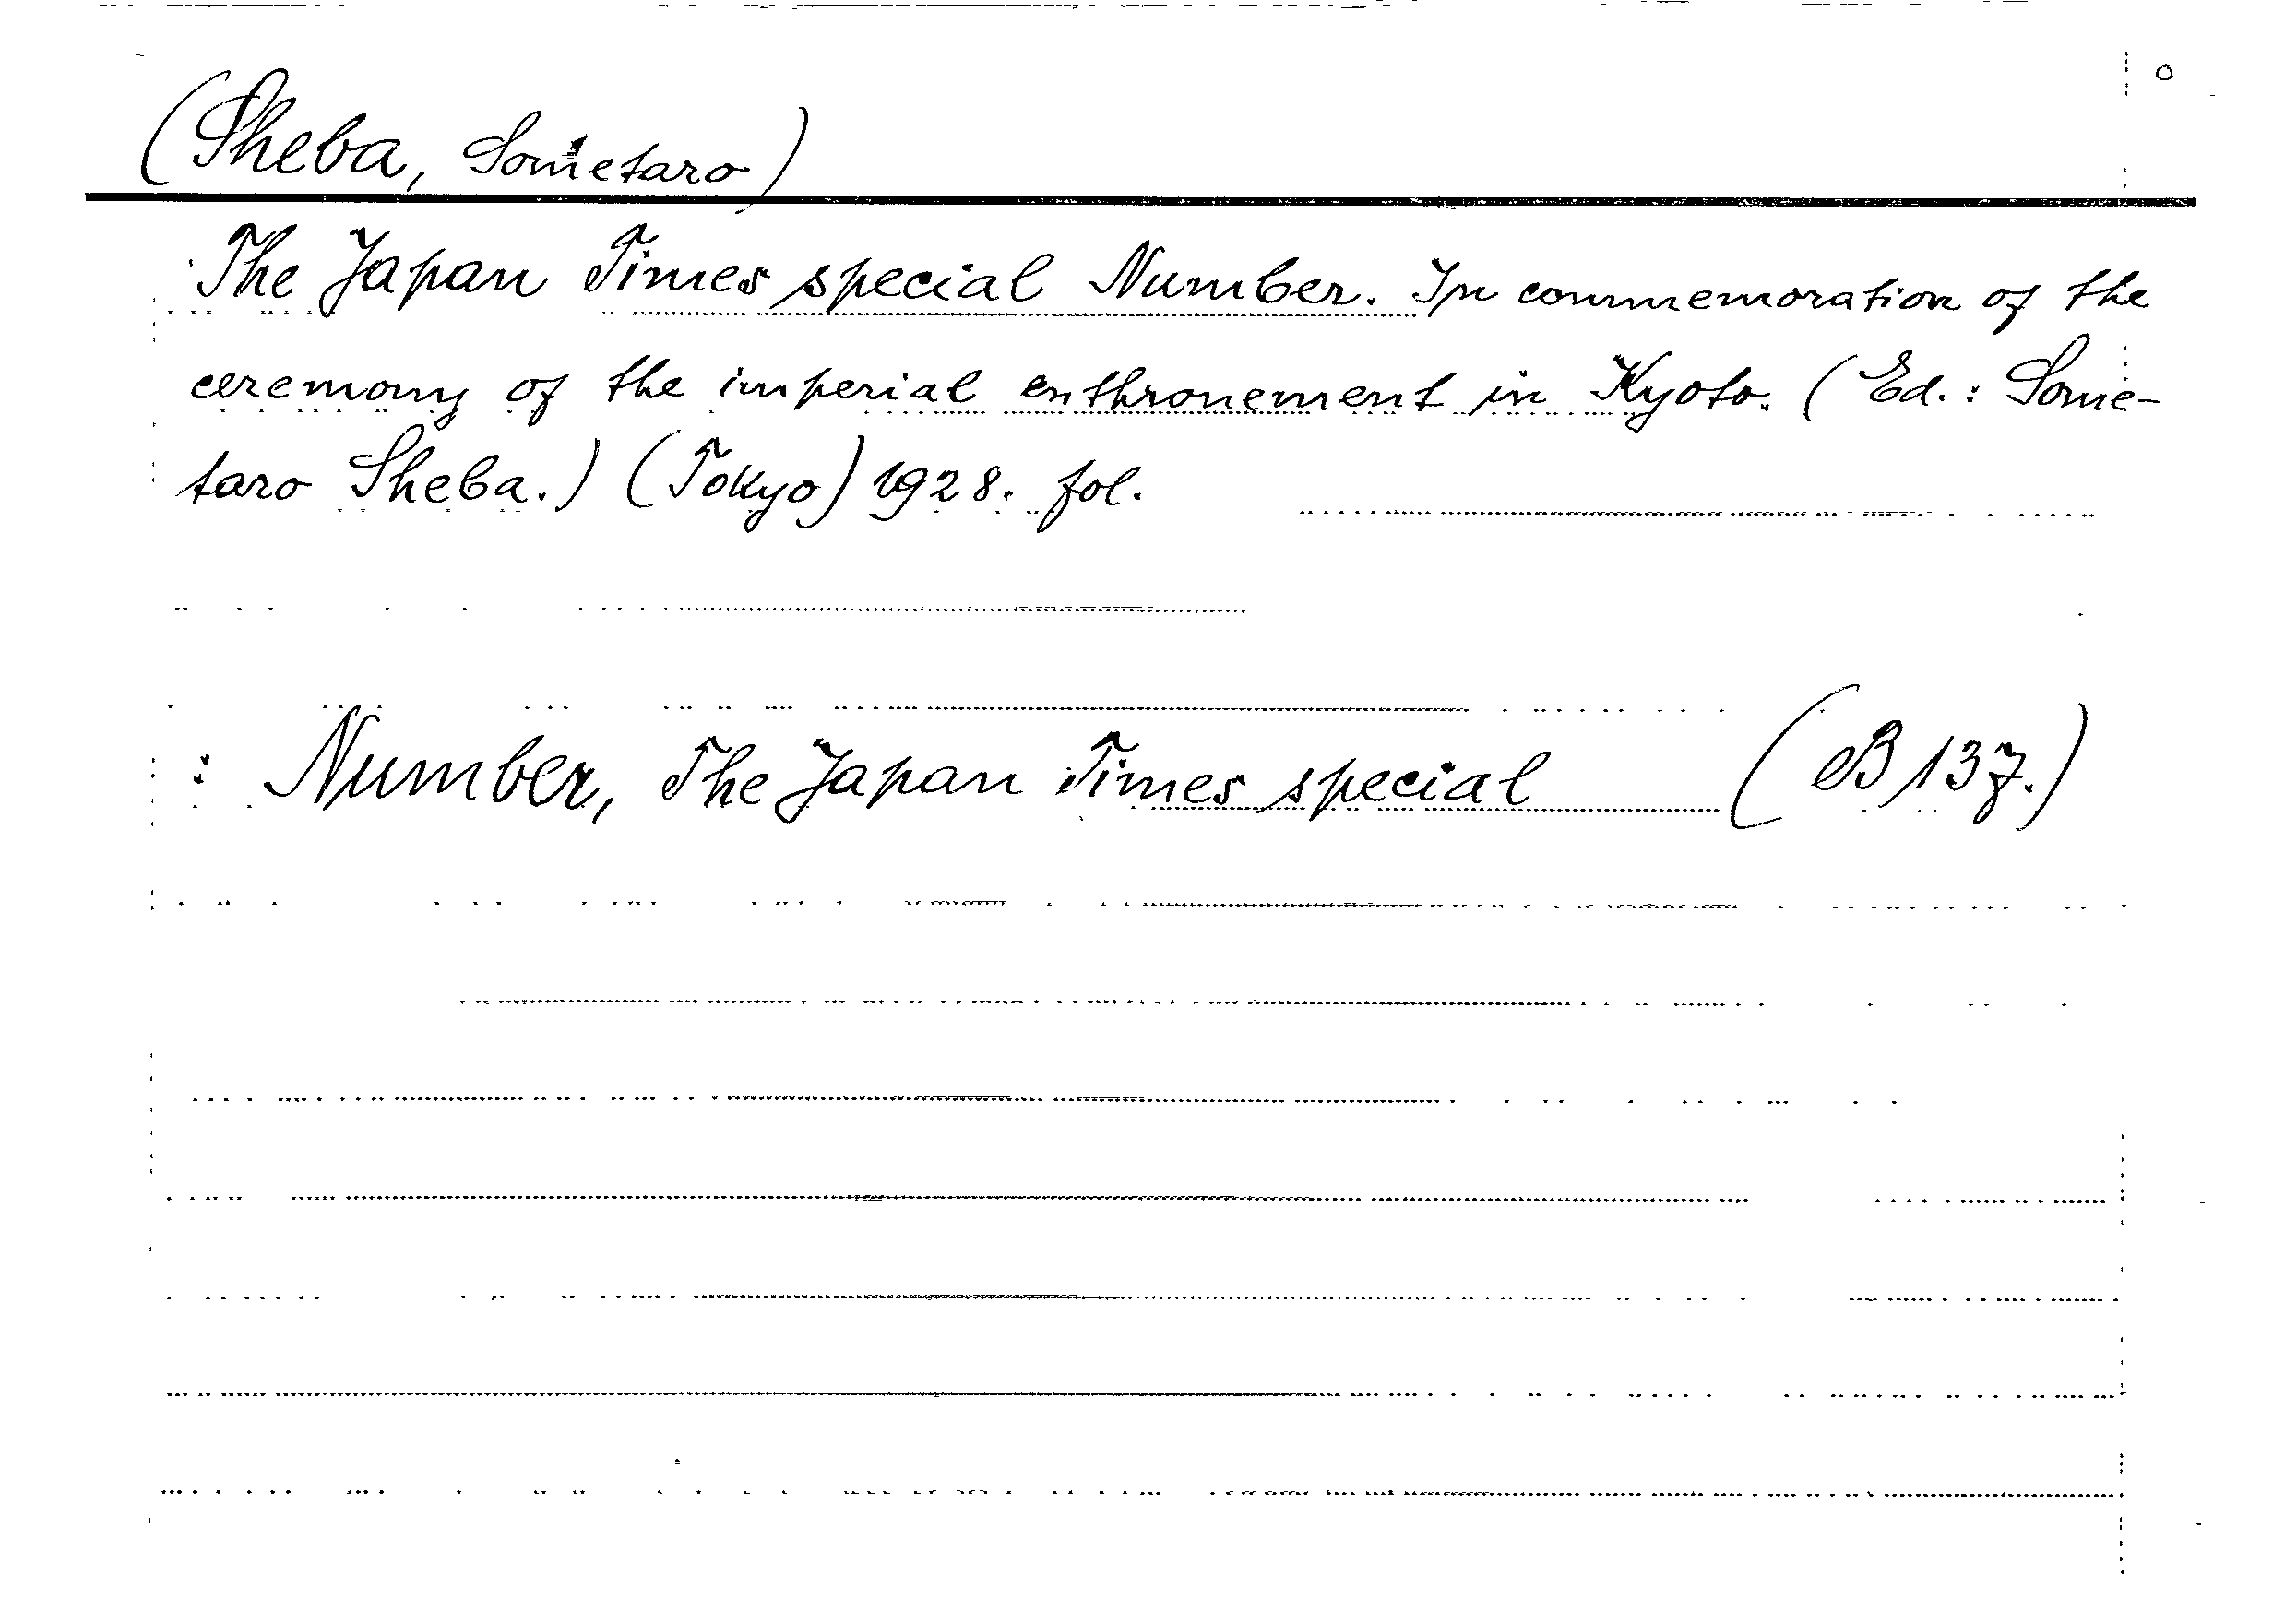 (Sheba, Sometaro)
The Japan Times special Number. In commemoration of the
ceremony of the imperial enthronement in Kyoto. (Ed.: Some-
taro Sheba.) (Tokyo) 1928. fol.
: Number, The Japan Times special (B 137.)